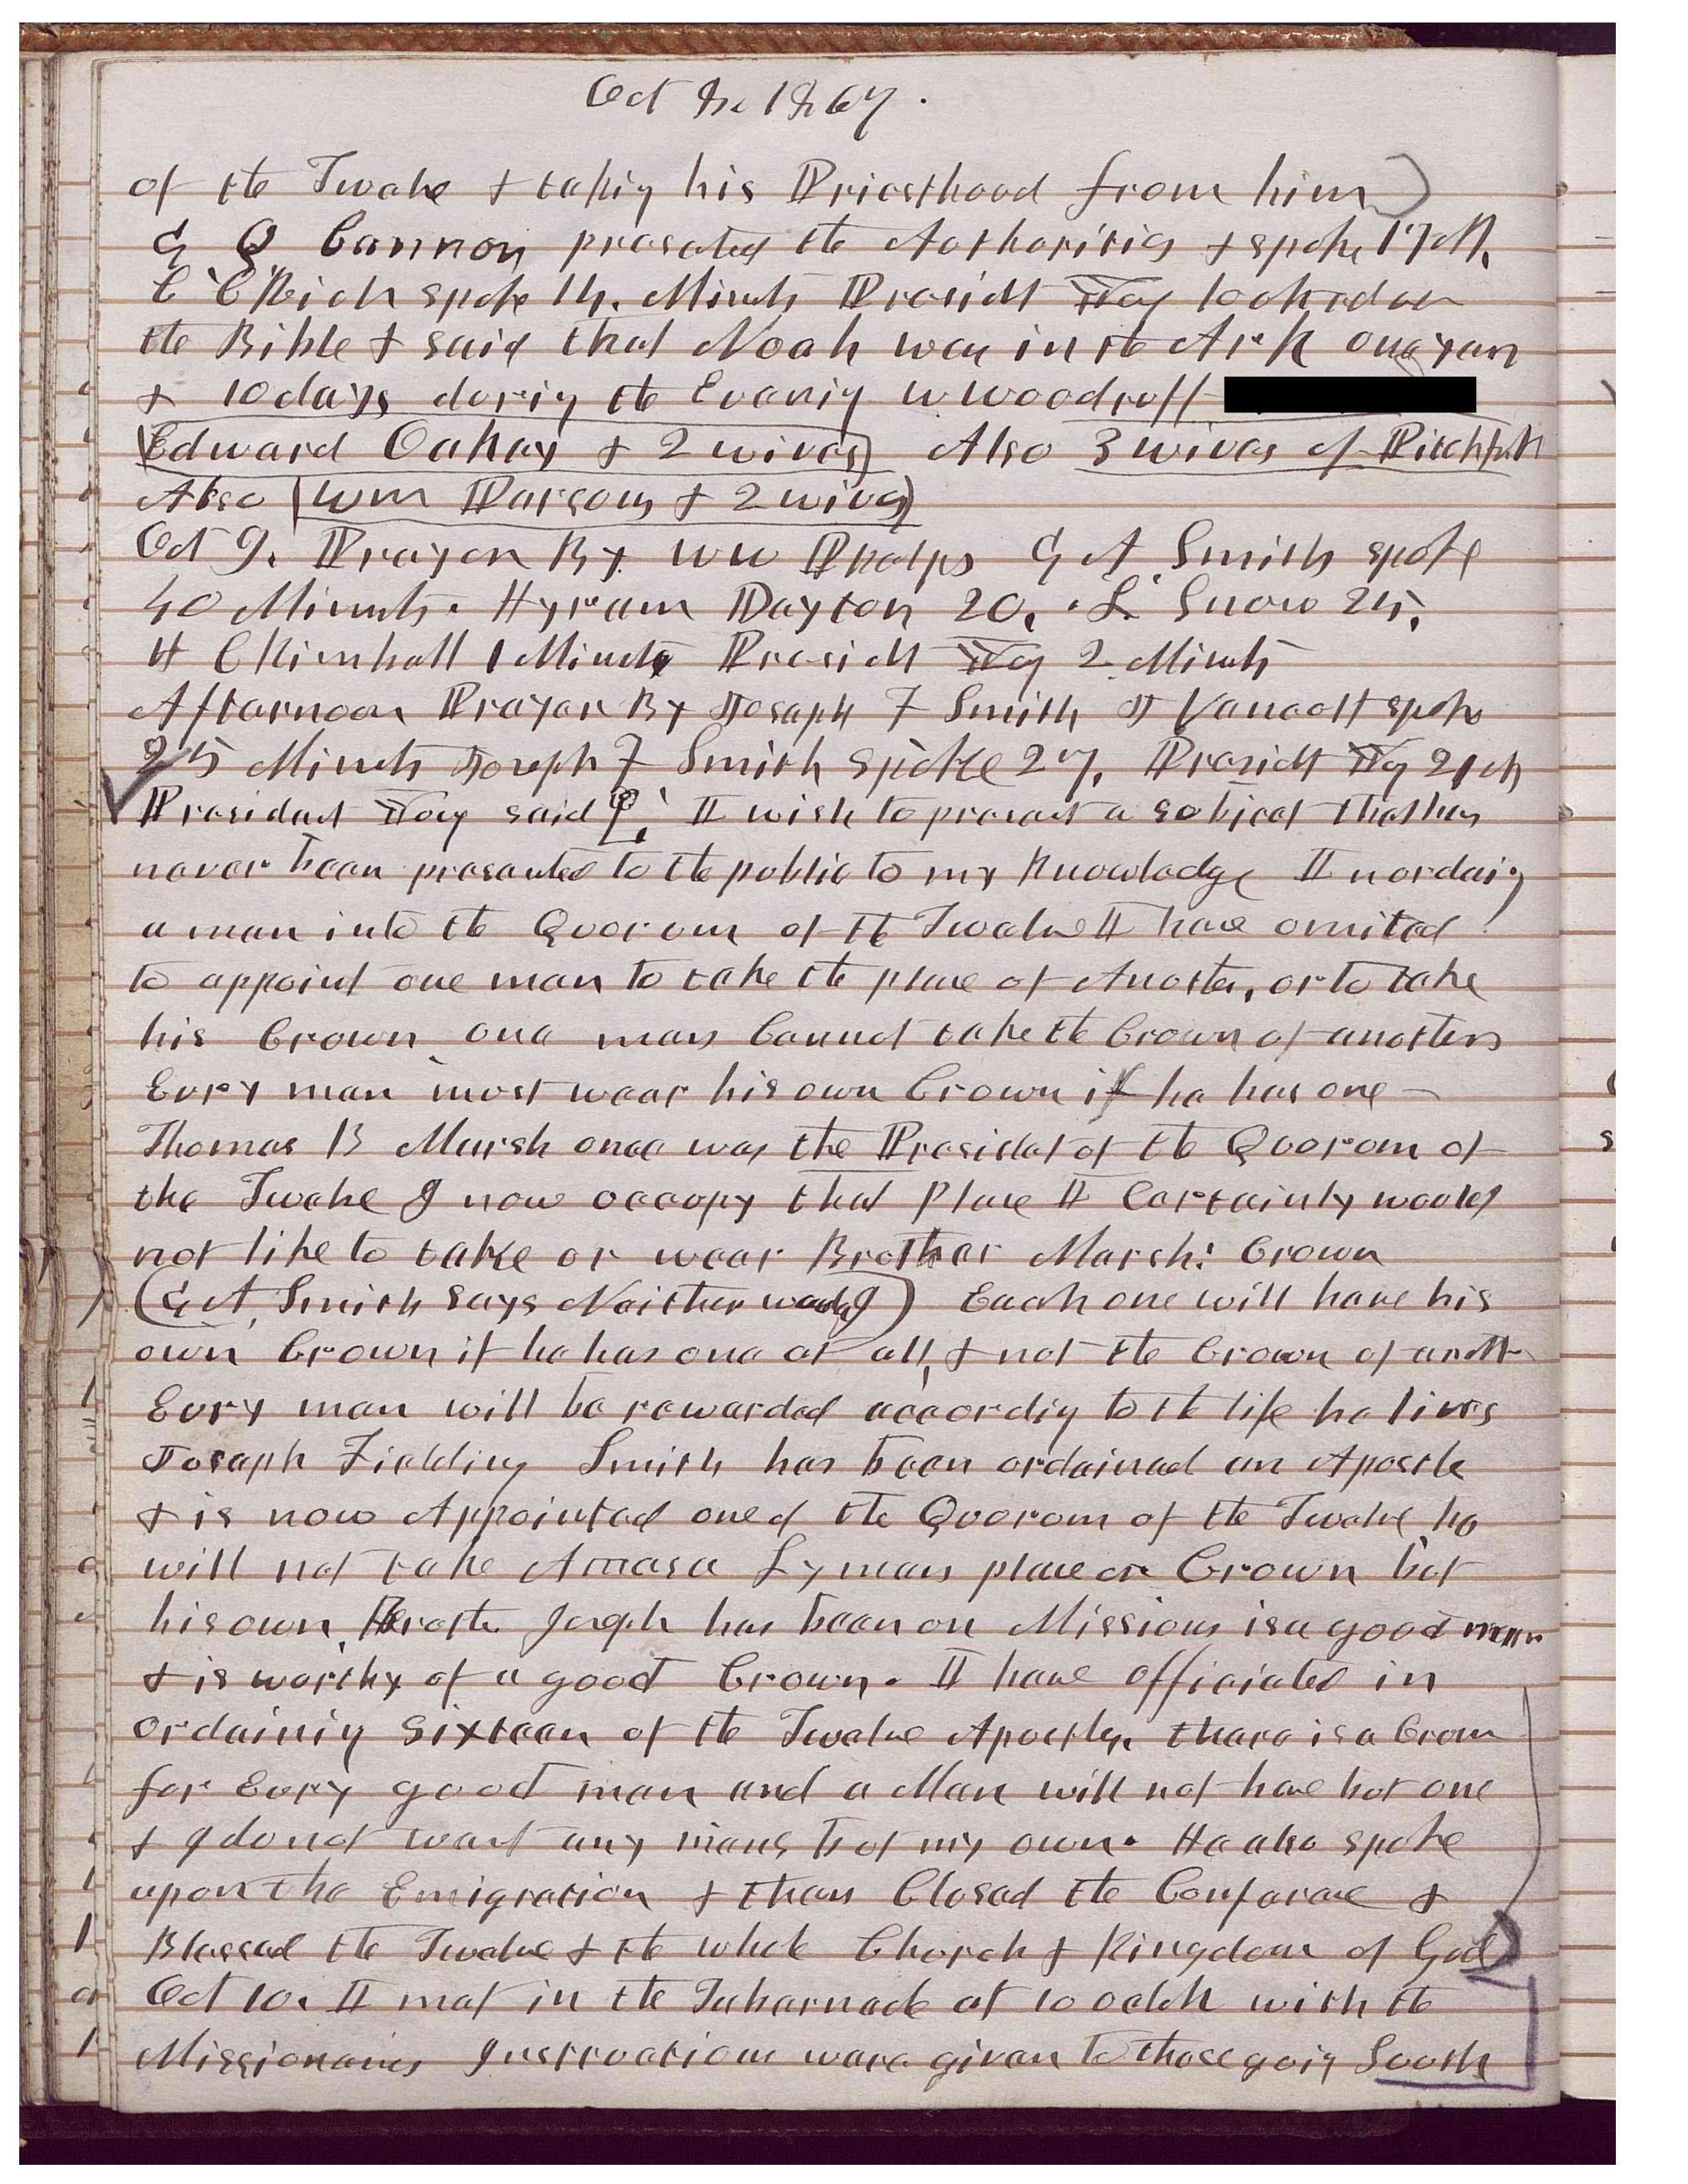 Oct 8. 1867.
of the Twelve & taking his Priesthood from him)
G Q Cannon presented the Authorities & spoke 17 M.
C C Rich spoke 14. Minuts Presidt Young looked over
the Bible & said that Noah was in the Ark one year
& 10 days during the Evening W Woodruff
(Edward Oakey & 2 wives) Also 3 wives of Pitchfork
Also (Wm Parsons & 2 wives)
Oct 9. Prayer By W W Phelps G A Smith spoke
40 Minuts. Hyram Dayton 20, L Snow 25,
H C Kimball 1 Minute Presidt Young 2 Minuts
Afternoon Prayer By Joseph F Smith J Vancott spoke
25 Minuts Joseph F Smith spoke 27, Presidt Yg 21 M
President Young said I wish to present a subject that has
never been presented to the public to my knowledge In ordaing
a man into the Quorum of the Twelve I have omited
to appoint one man to take the place of Another, or to take
his Crown one man Cannot take the Crown of another
Evry man must wear his own Crown if he has one
Thomas B Marsh once was the President of the Quorum of
the Twelve I now occupy that Place I Certainly would
not like to take or wear Brother Marsh: Crown
(G A Smith says Neither would I) Each one will have his
own Crown if he has one at all, & not the Crown of anothe
Evry man will be rewarded according to the life he lives
Joseph Fielding Smith has been ordained an Apostle
& is now Appointed one of the Quorum of the Twelve he
will not take Amasa Lymans place or Crown but
his own, Brother Joseph has been on Missions is a good man
& is worthy of a good Crown. I have officiated in
ordaining sixteen of the Twelve Apostles, there is a Crown
for Evry good man and a Man will not have but one
& I do not want any mans but my own. He also spoke
upon the Emigration & then Closed the Conferance &
Blessed the Twelve & the whole Church & Kingdom of God
Oct 10. I met in the Tabernacle at 10 oclok with the
Missionaries Instructions ware given to those going South